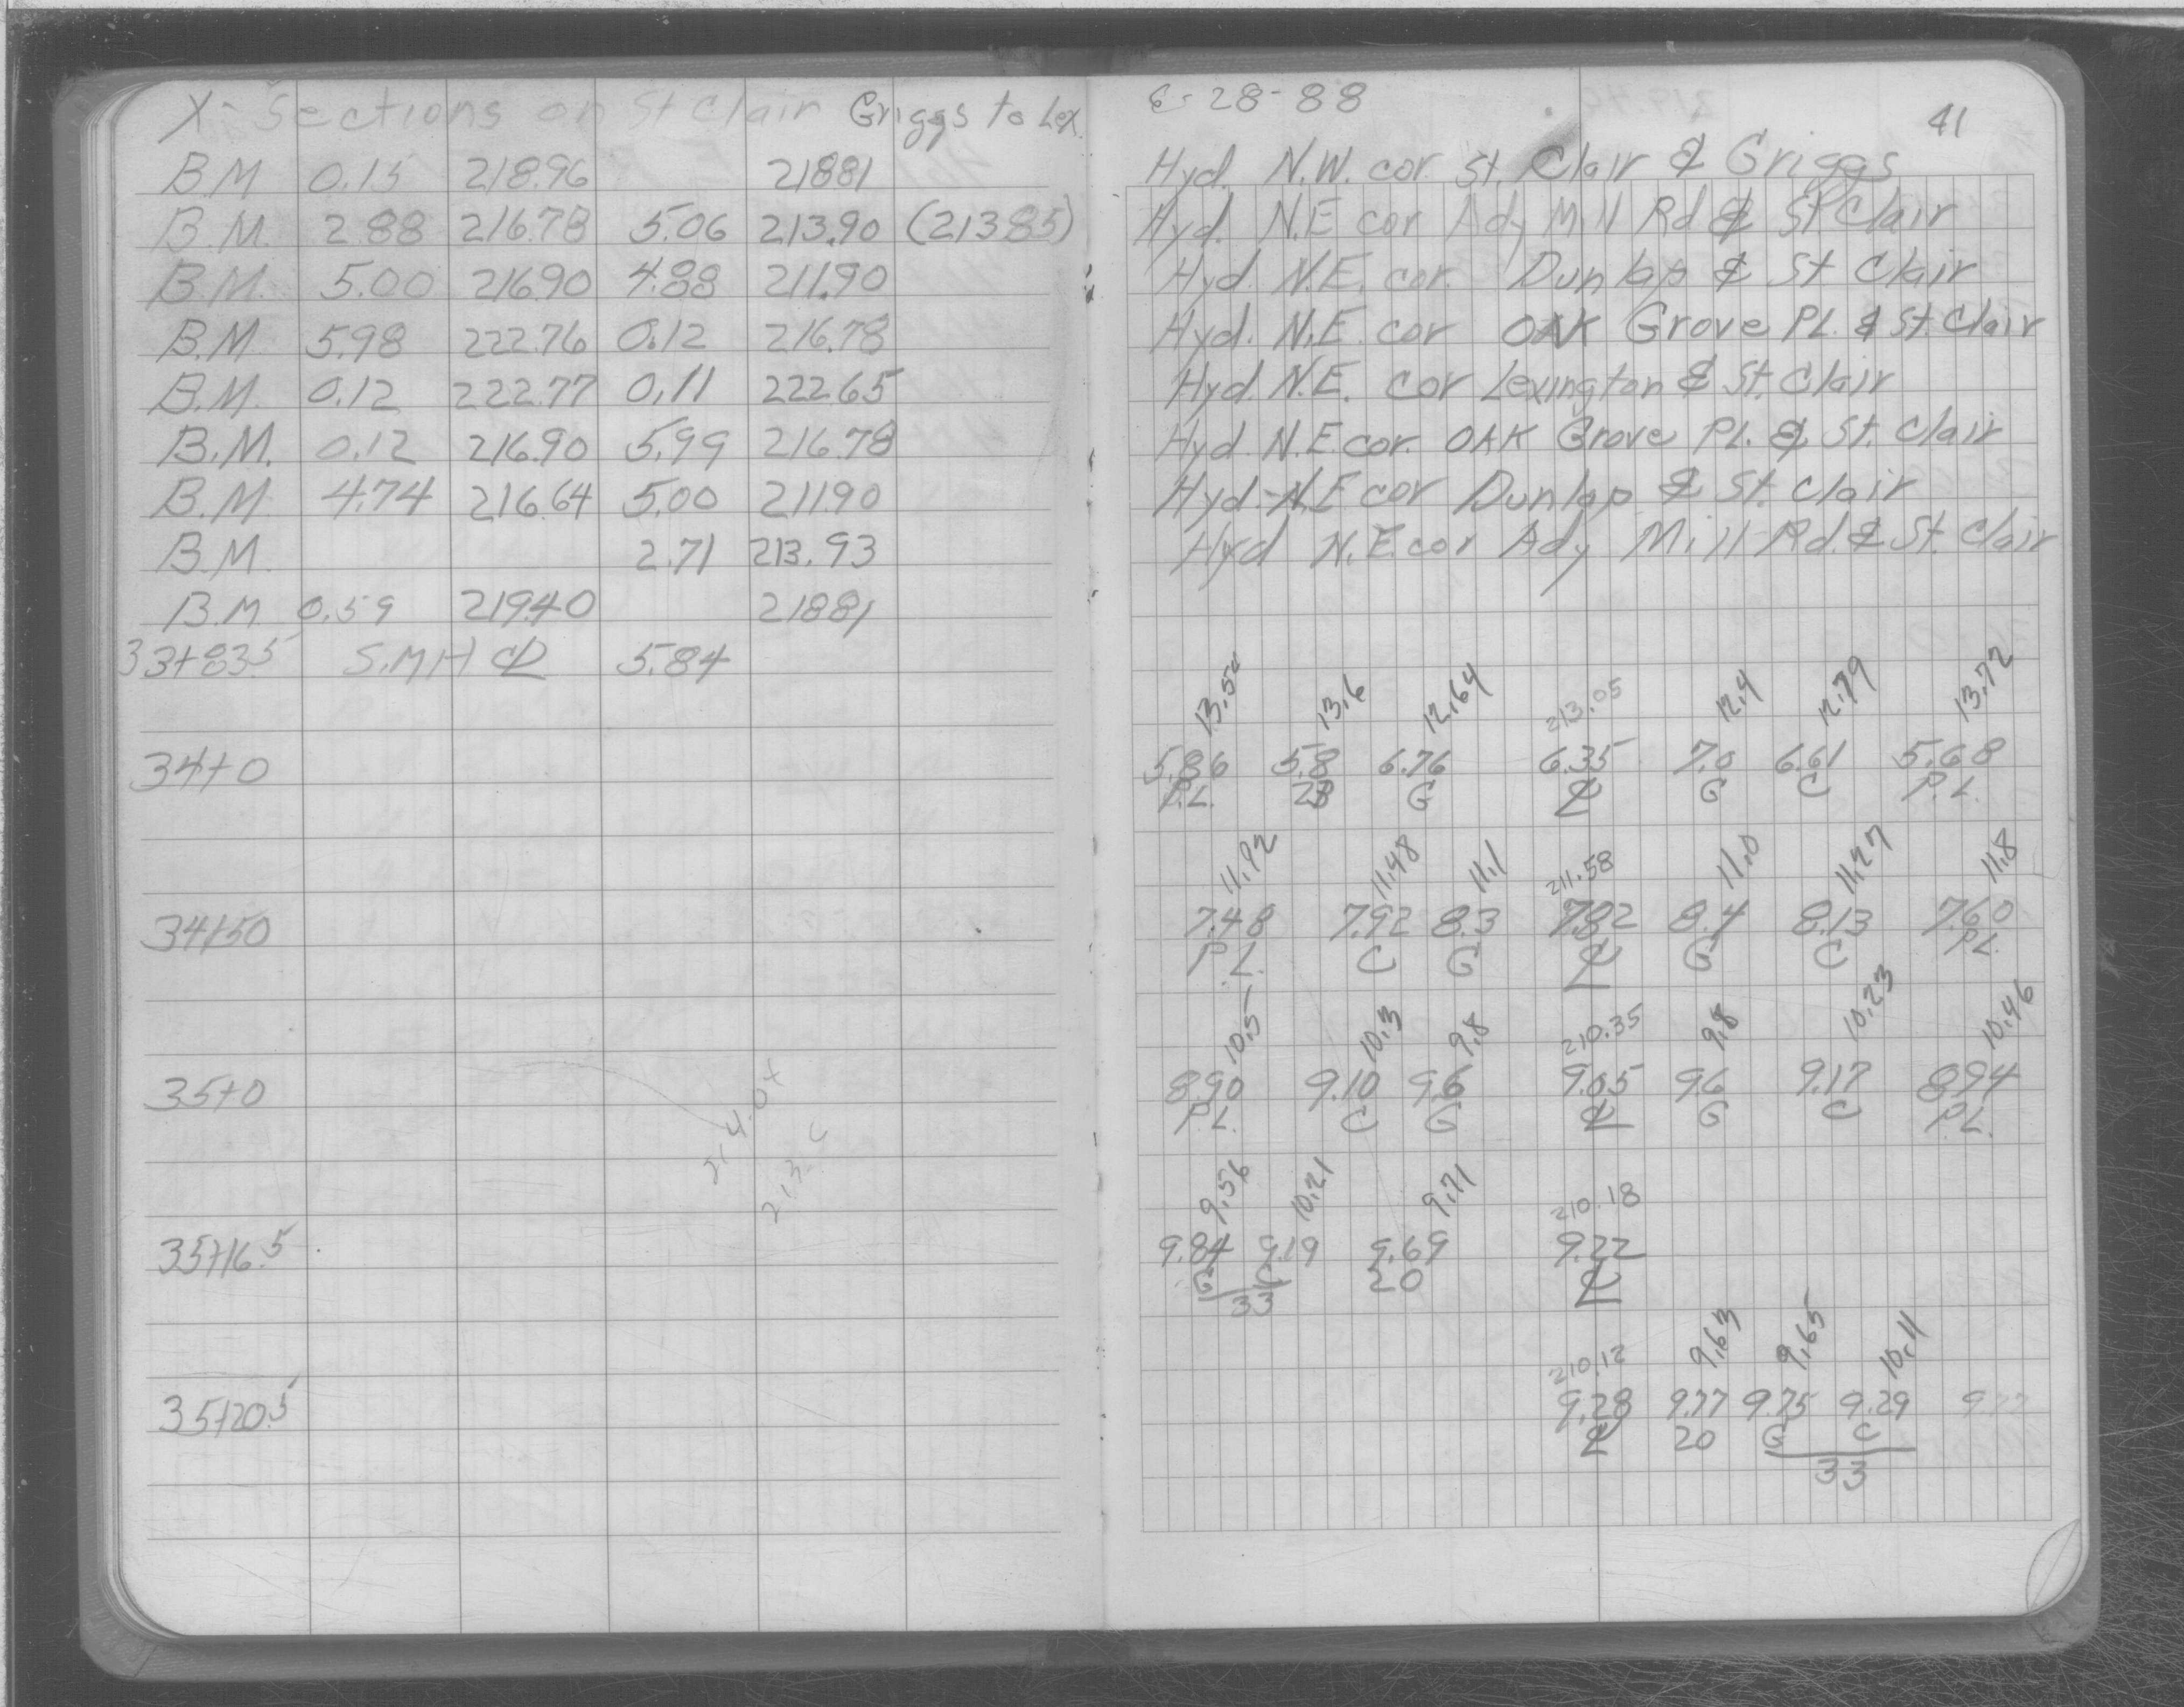 X-Sections on St Clair Griggs to Lex.
B.M 0.15 218.96 218.81
B.M. 2.88 216.78 5.06 213.90 (213.85)
B.M. 5.00 216.90 4.88 211.90
B.M 5.98 222.76 0.12 216.78
B.M. 0.12 222.77 0.11 222.65
B.M. 0.12 216.90 5.99 216.78
B.M. 4.74 216.64 5.00 211.90
B.M. 2.71 213.93
B.M 0.59 219.40 218.81
33+83.5 S.MH ℄ 5.84
34+0
34+50
35+0
214.0
35+16.5
35+20.5
6-28-88
41
Hyd. N.W. cor. St. Clair & Griggs
Hyd. N.E cor Ady Mill Rd & St Clair
Hyd. N.E. cor. Dunlap & St Clair
Hyd. N.E. cor OAK Grove PL. & St. Clair
Hyd. N.E. cor Lexington & St. Clair
Hyd. N.E. cor. OAK Grove PL. & St. Clair
Hyd. N.E cor Dunlap & St. Clair
Hyd N.E. cor Ady Mill Rd. & St. Clair
13.54 13.6 12.64 213.05 12.4 12.79 13.72
5.86 5.8 6.76 6.35 7.0 6.61 5.68
P.L. 28 G ℄ G C P.L.
11.92 11.48 11.1 211.58 11.0 11.27 11.8
7.48 7.92 8.3 7.82 8.4 8.13 7.60
P.L. C G ℄ G C P.L.
10.5 10.3 9.8 210.35 9.8 10.23 10.46
8.90 9.10 9.6 9.05 9.6 9.17 8.94
P.L. C G ℄ G C P.L.
9.56 10.21 9.71 210.18
9.84 9.19 9.69 9.22
G C 20 ℄
33
210.12 9.63 9.65 10.11
9.28 9.77 9.75 9.29 9.77
℄ 20 G C
33